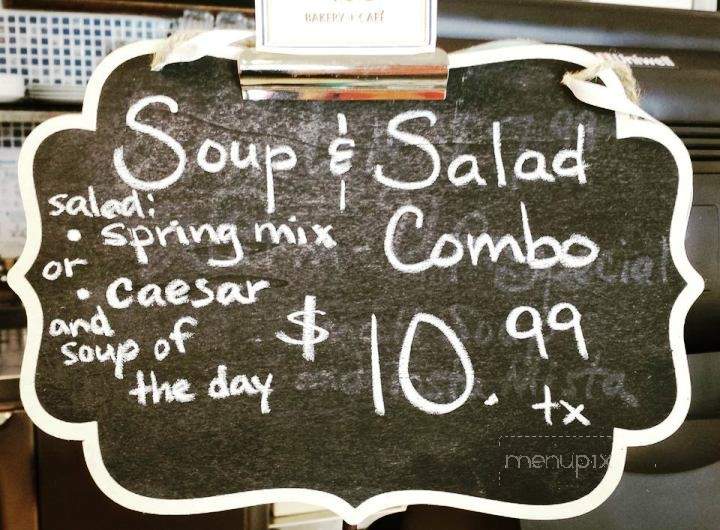 BAKERY + CAFÉ
Soup & Salad
Combo
salad:
• spring mix
or
• caesar
and
soup of
the day
$10.99
+x
menupix